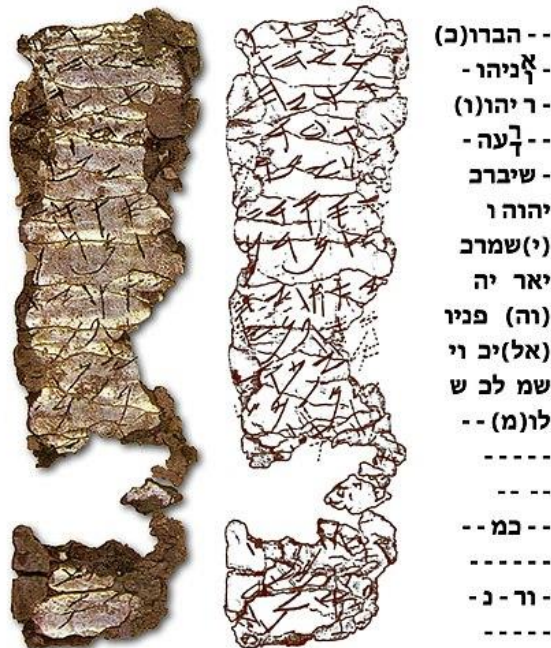 -- הברו(כ)
- א/ו ניהו -
- ר יהו(ו)
-- ר/ד עה -
- שיברכ
יהוה ו
(י)שמרכ
יאר יה
(וה) פניו
(אל)יכ וי
שמ לכ ש
לו(מ)--
-----
-- --
-- כמ --
------
- ור - נ -
-----